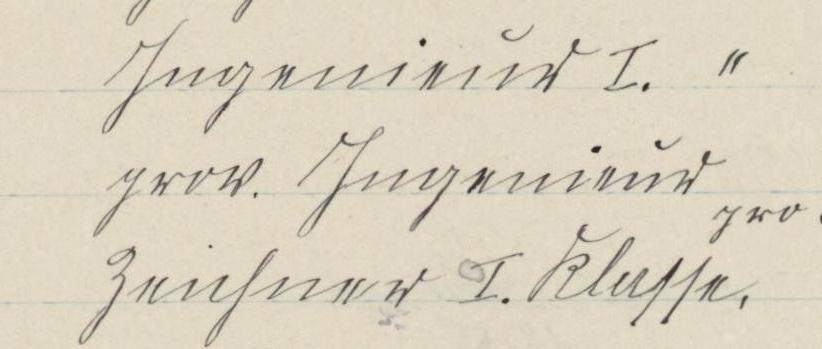 Ingenieur I. "
prov. Ingenieur
pro
Zeichner I. Klasse.